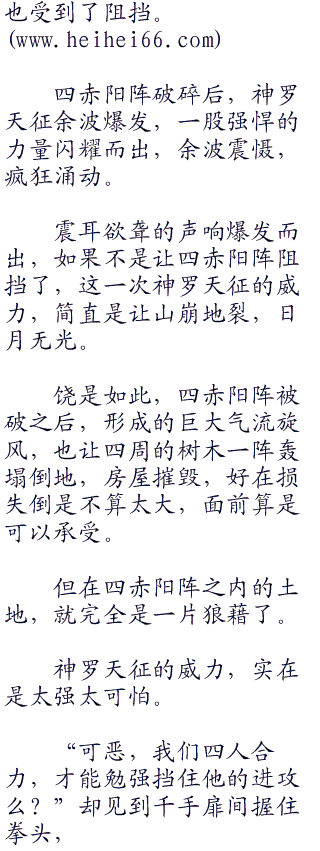 也受到了阻挡。
(www.heihei66.com)
四赤阳阵破碎后，神罗
天征余波爆发，一股强悍的
力量闪耀而出，余波震慑，
疯狂涌动。
震耳欲聋的声响爆发而
出，如果不是让四赤阳阵阻
挡了，这一次神罗天征的威
力，简直是让山崩地裂，日
月无光。
饶是如此，四赤阳阵被
破之后，形成的巨大气流旋
风，也让四周的树木一阵轰
塌倒地，房屋摧毁，好在损
失倒是不算太大，面前算是
可以承受。
但在四赤阳阵之内的土
地，就完全是一片狼藉了。
神罗天征的威力，实在
是太强太可怕。
“可恶，我们四人合
力，才能勉强挡住他的进攻
么？”却见到千手扉间握住
拳头，